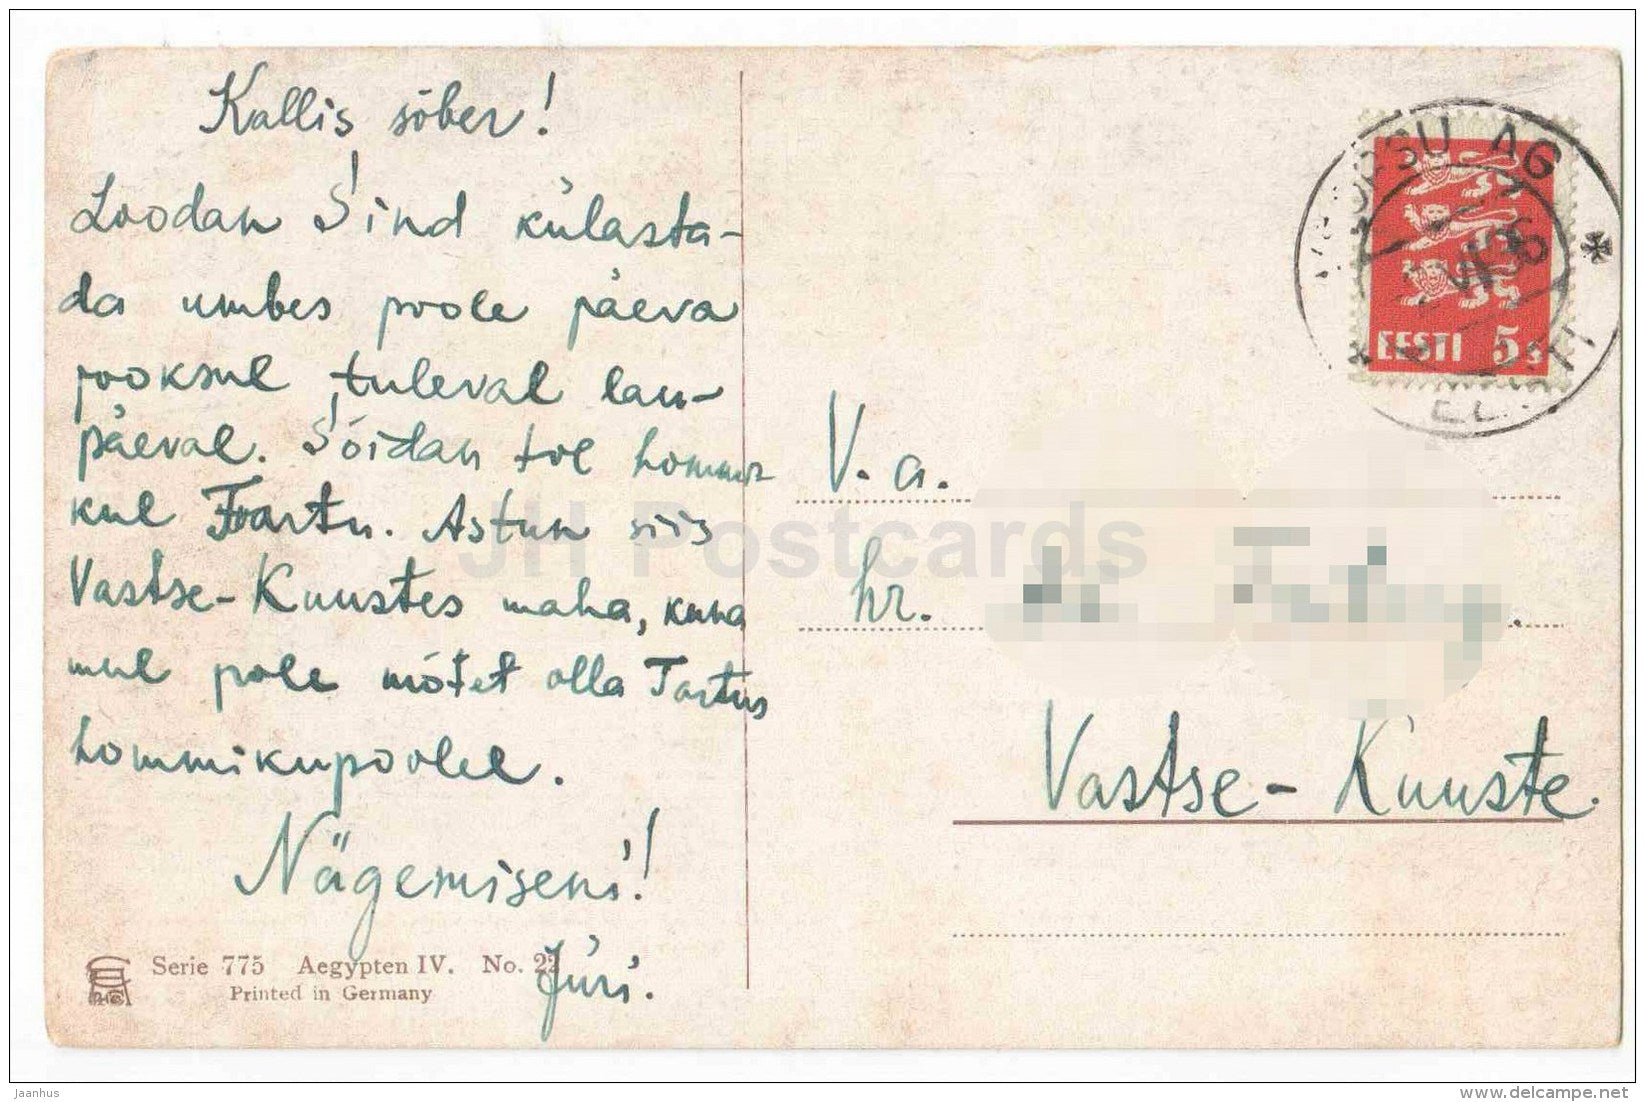 Kallis sõber!
Loodan Sind külasta-
da umbes poole päeva
pooksul, tuleval lau-
päeval. Sõidan tol hommi-
kul Tartu. Astun siis
Vastse-Kuustes maha, kuna
mul pole mõtet olla Tartus
hommikupoolel.
Nägemiseni!
Jüri.
Serie 775 Aegypten IV. No. 22
Printed in Germany
AG
EESTI 5 s
V. a.
hr.
Vastse-Kuuste.
JH Postcards
jaanhus
www.delcampe.net